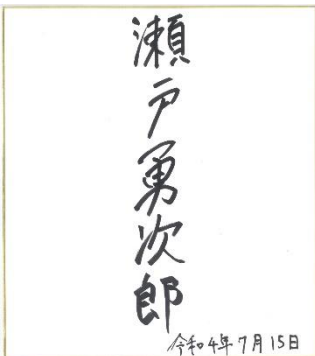 瀬戸勇次郎
令和4年7月15日